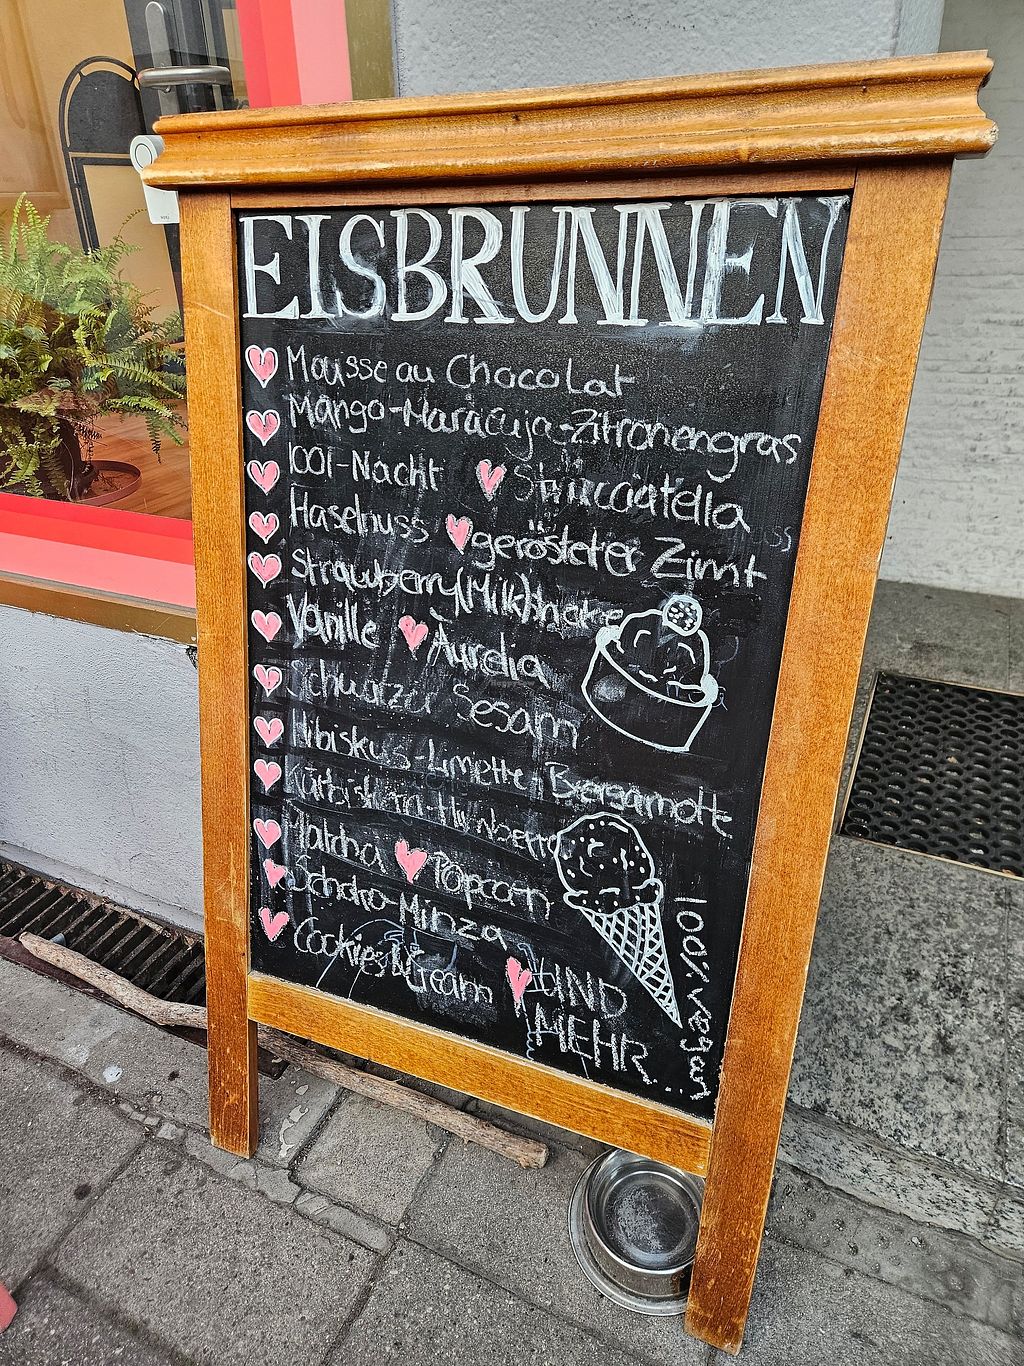 EISBRUNNEN
Mousse au Chocolat
Mango-Maracuja-Zitronengras
1001-Nacht Stracciatella
Haselnuss gerösteter Zimt
Strawberry(Milk)shake
Vanille Aurelia
Schwarzer Sesam
Hibiskus-Limette-Bergamotte
Matcha Popcorn
Schoko-Minza
Cookies & Cream UND
MEHR...
100% vegan